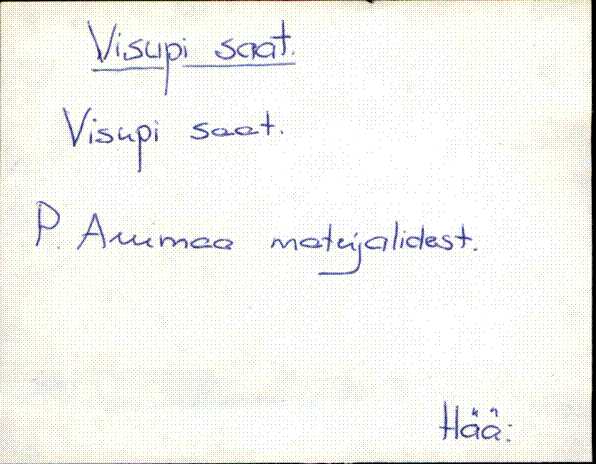 Visupi saat.
Visupi saat.
P. Arumaa materjalidest.
Hää: